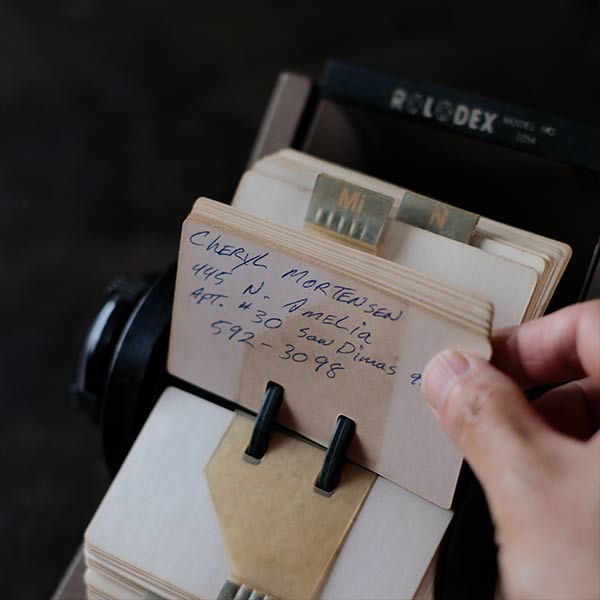 ROLODEX MODEL NO
2254
Mi
N
CHERYL MORTENSEN
445 N. AMELIA
APT. #30 SAN DIMAS 9
592-3098